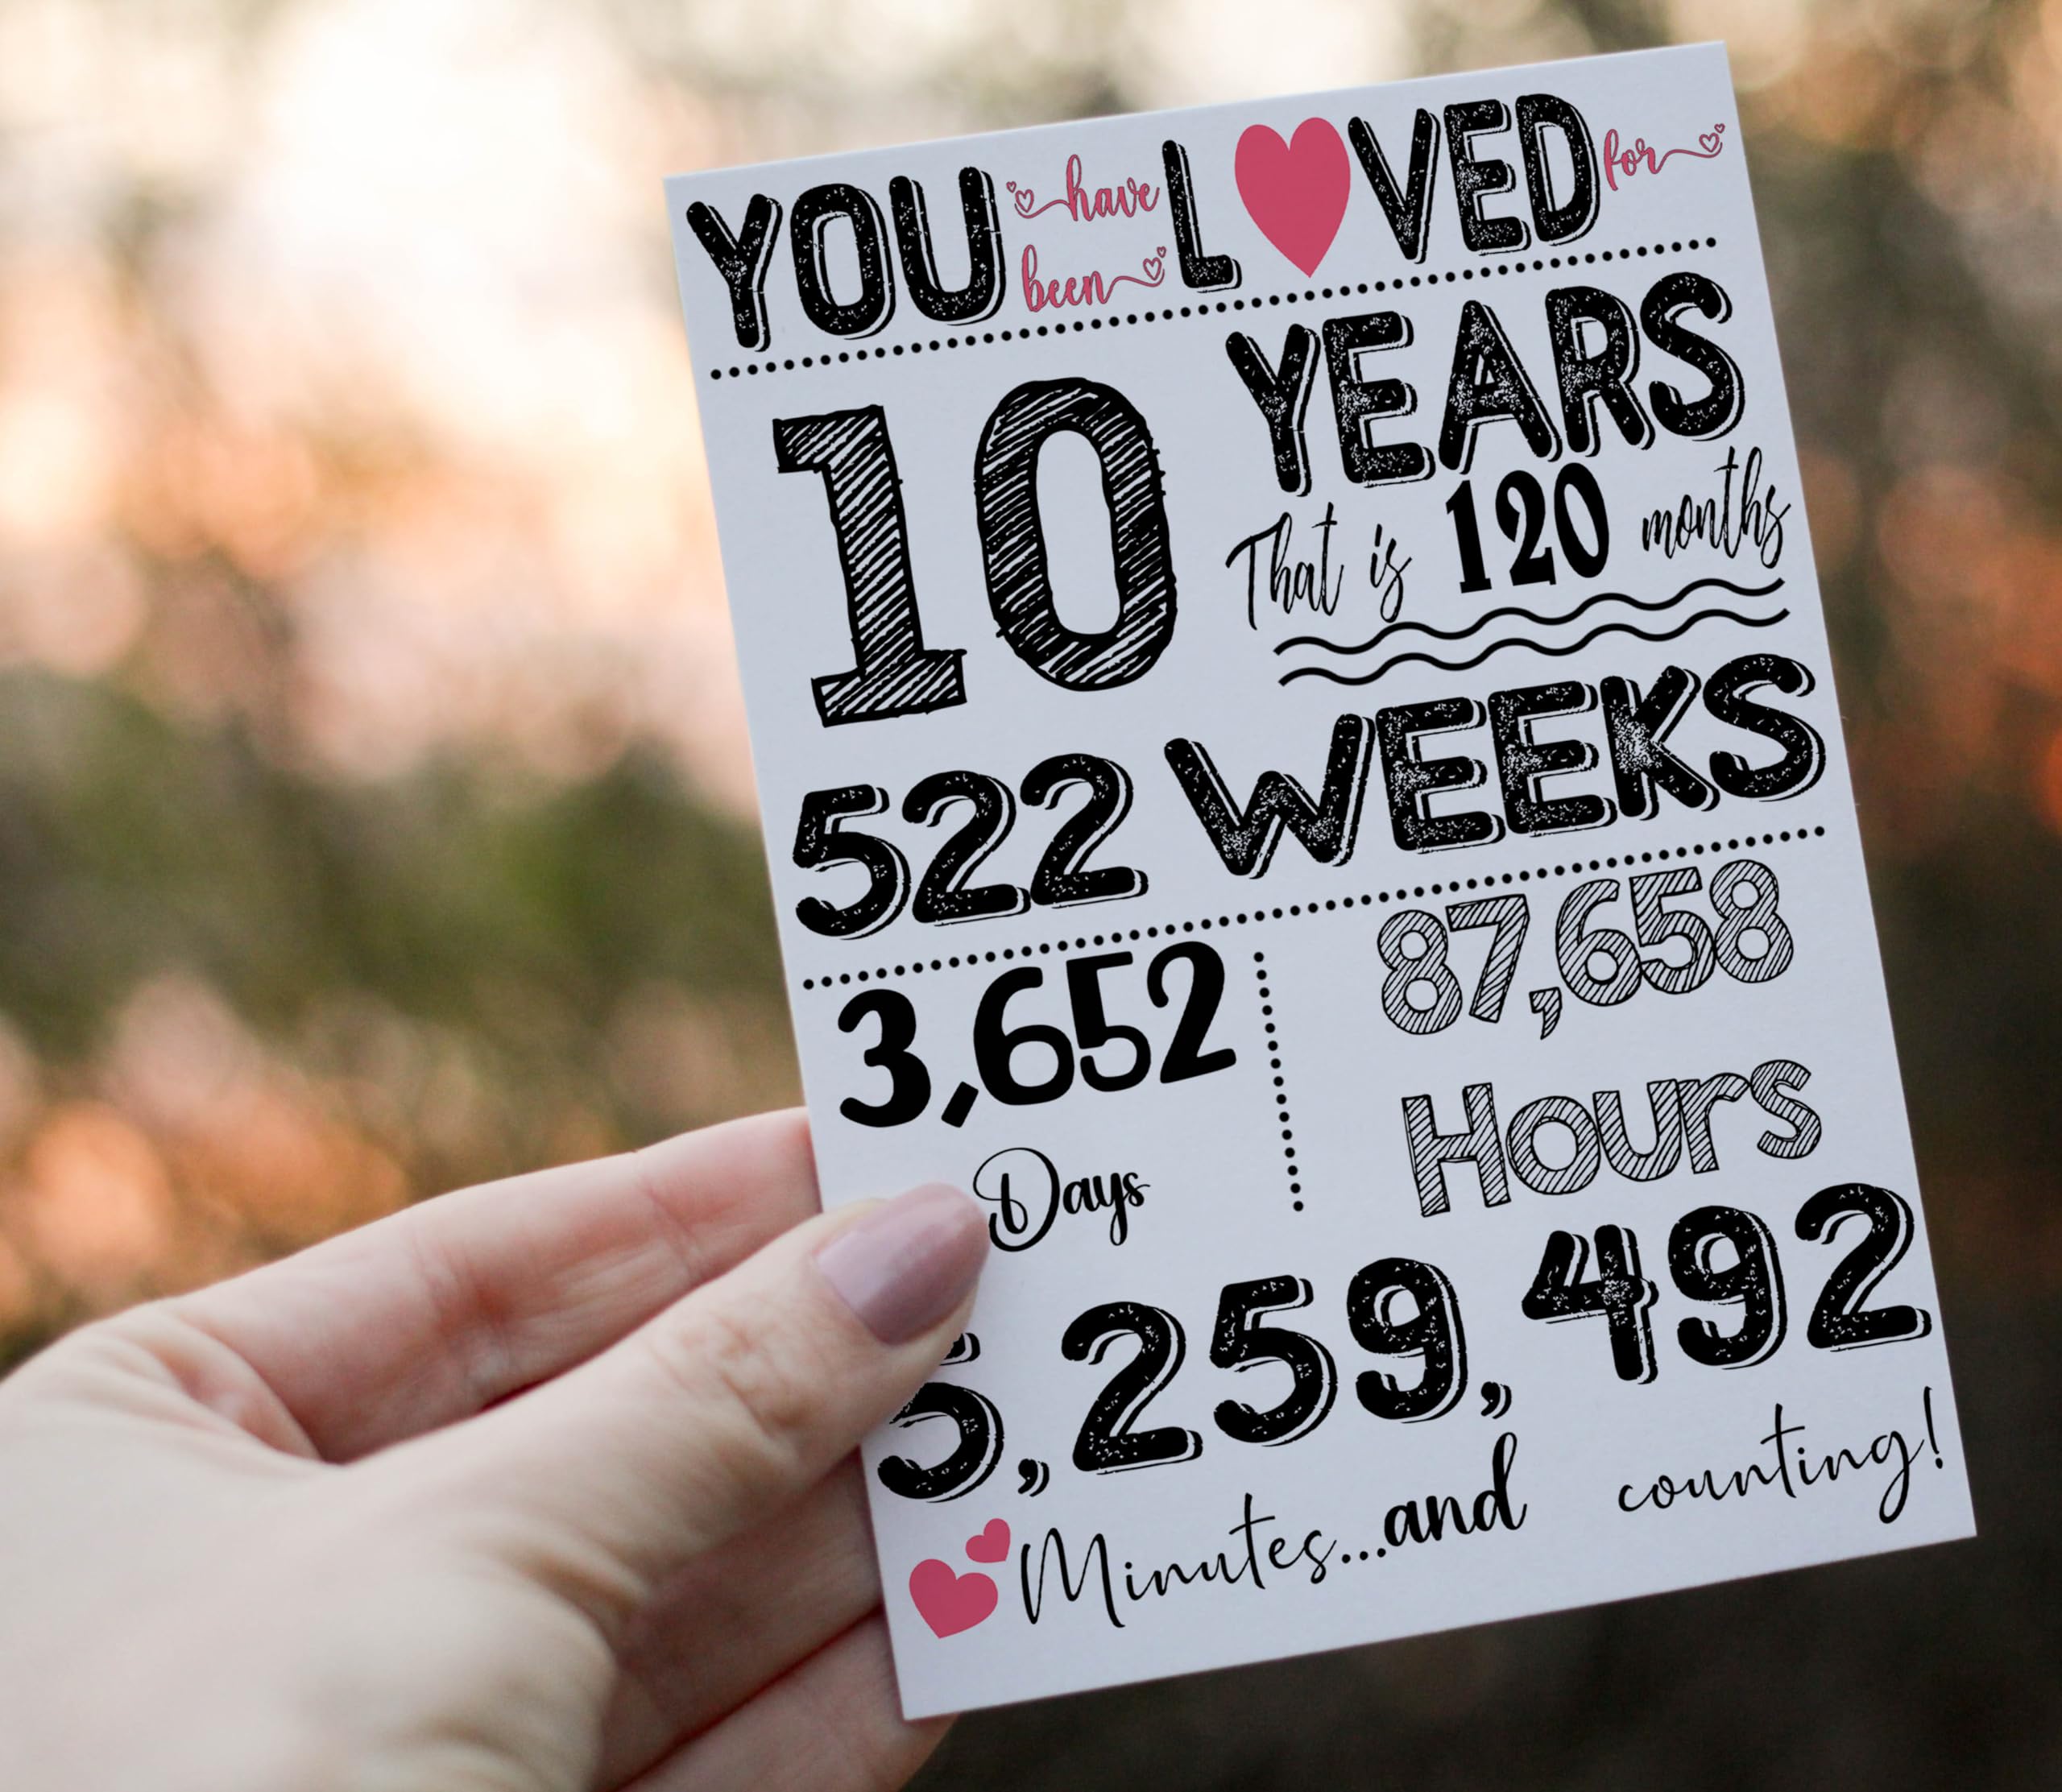 YOU have been L❤VED for
10 YEARS
That is 120 months
522 WEEKS
3,652 Days
87,658 Hours
5,259,492
Minutes...and counting!